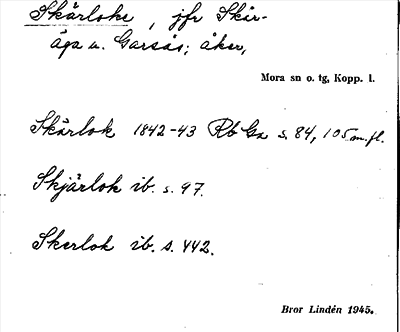 Skärloks, jfr Skär-
äga u. Garsås; åker,
Mora sn o. tg, Kopp. l.
Skärlok 1842-43 Rb Ga s. 84, 105 m. fl.
Skjärlok ib. s. 97.
Skerlok ib. s. 442.
Bror Lindén 1945.